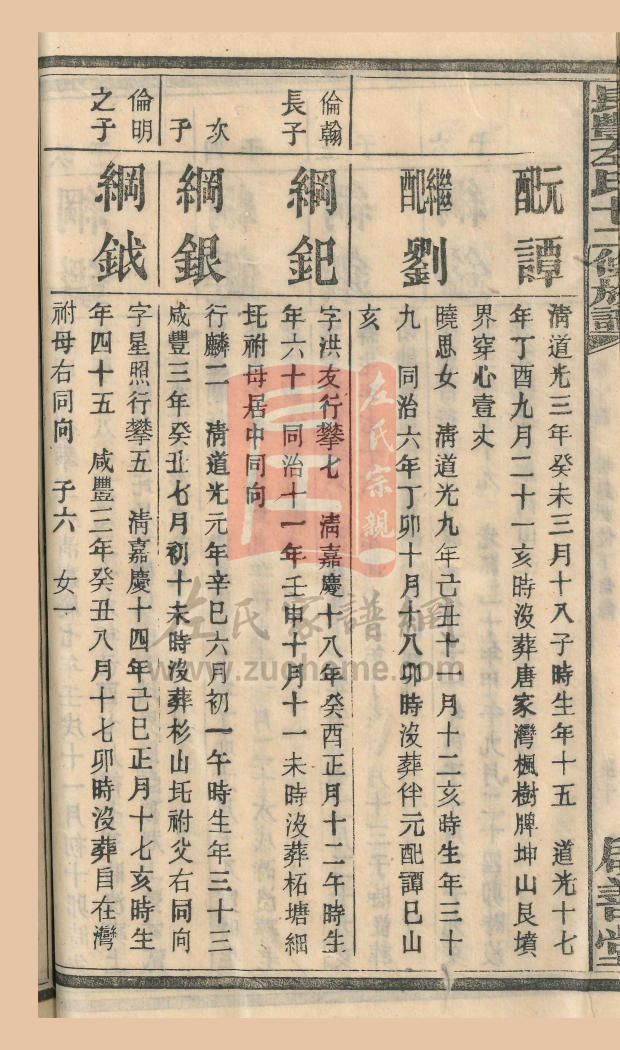 長豐左氏十二修族譜
元配
譚
清道光三年癸未三月十八子時生年十五 道光十七
年丁酉九月二十一亥時沒葬唐家灣楓樹牌坤山艮墳
界穿心壹丈
繼配
劉
曉思女 清道光九年己丑十一月十二亥時生年三十
九 同治六年丁卯十月十八卯時沒葬伴元配譚巳山
亥
倫翰
長子
綱鈀
字洪友行攀七 清嘉慶十八年癸酉正月十二午時生
年六十 同治十一年壬申十月十一未時沒葬柘塘
圫祔母居中同向
次
子
綱銀
行麟二 清道光元年辛巳六月初一午時生年三十三
咸豐三年癸丑七月初十未時沒葬杉山圫祔父右同向
倫明
之子
綱鉞
字星照行攀五 清嘉慶十四年己巳正月十七亥時生
年四十五 咸豐三年癸丑八月十七卯時沒葬自在灣
祔母右同向 子六 女一
左氏宗親
左氏家譜網
www.zuohome.com